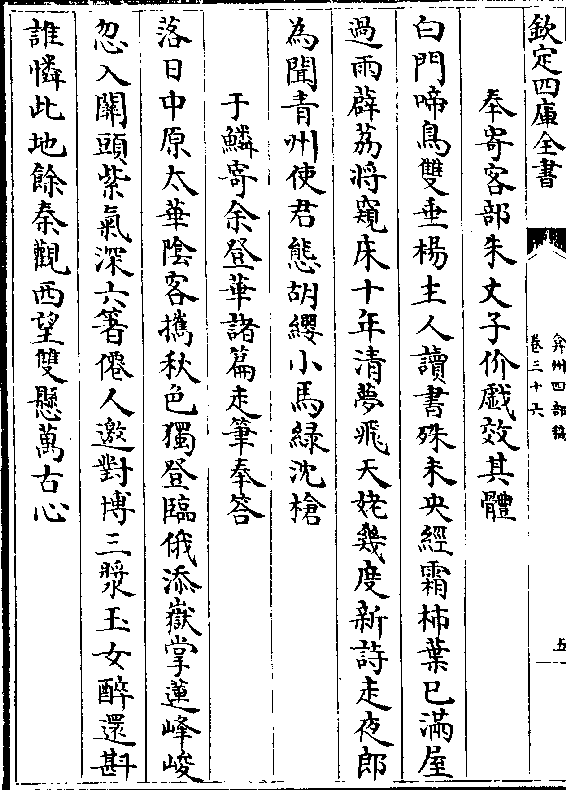 欽定四庫全書
弇州四部稿
卷三十六
五
奉寄客部朱丈子价戲效其體
白門啼鳥雙垂楊主人讀書殊未央經霜柿葉已滿屋
過雨薜荔将窺床十年清夢飛天姥幾度新詩走夜郎
為聞青州使君態胡纓小馬緑沈槍
于鱗寄余登華諸篇走筆奉答
落日中原太華陰客攜秋色獨登臨俄添嶽掌蓮峰峻
忽入關頭紫氣深六箸僊人邀對博三漿玉女醉還斟
誰憐此地餘秦觀西望雙懸萬古心